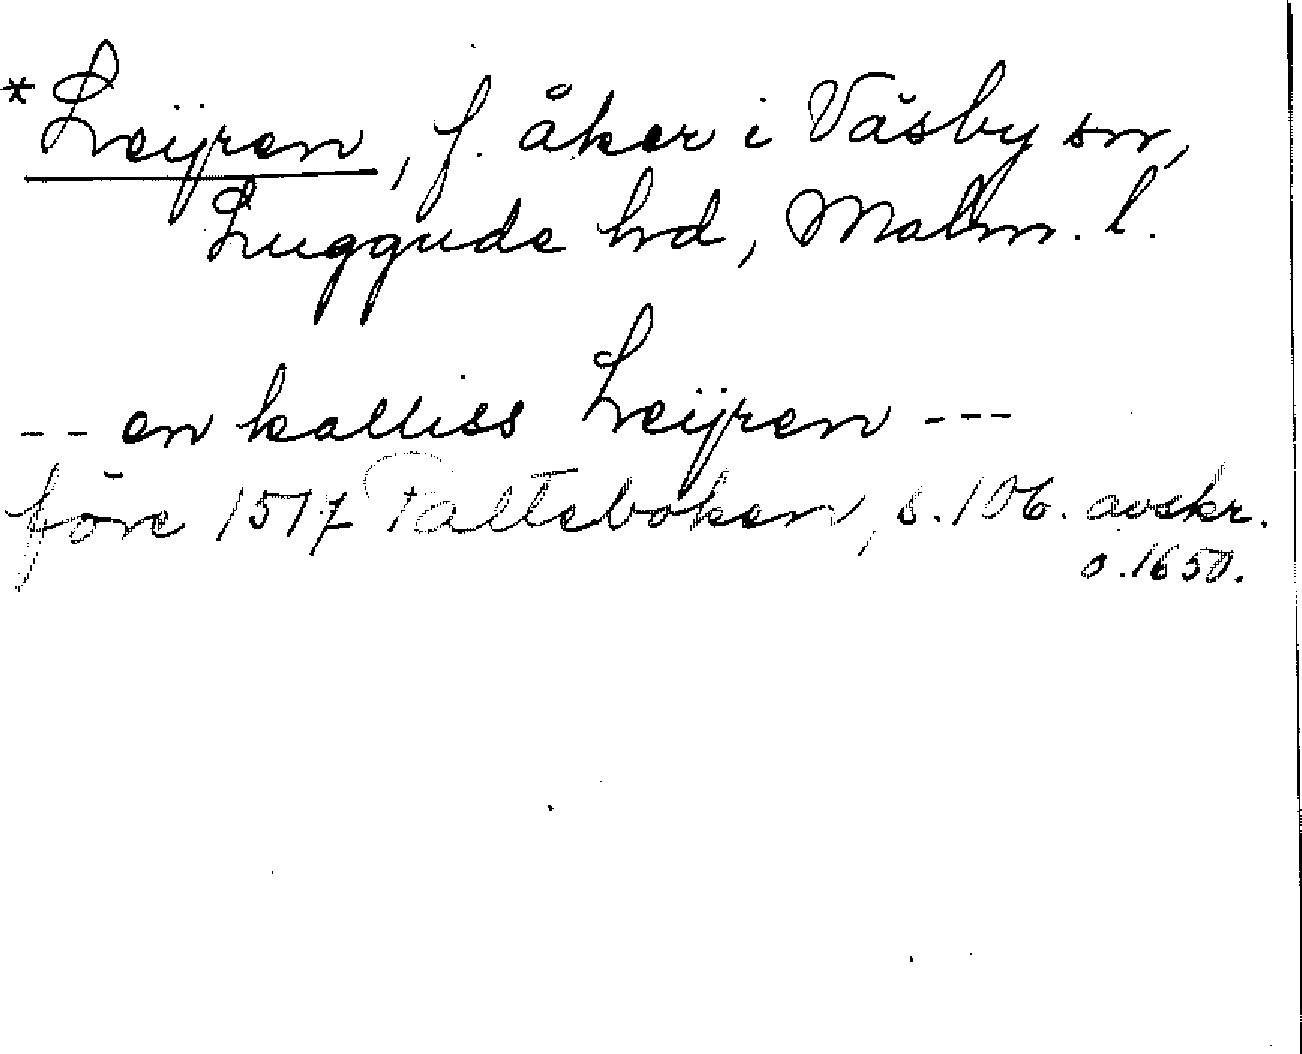 *Leijren, f. åker i Väsby sn,
Luggude hd, Malm. l.
-- en kalliss Leijren ---
före 1517 Palteboken, s. 106. avskr.
o. 1650.